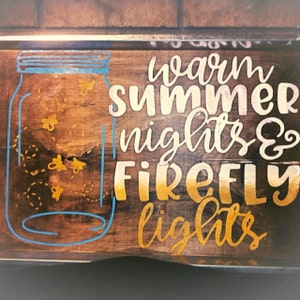 warm
summer
nights &
firefly
lights